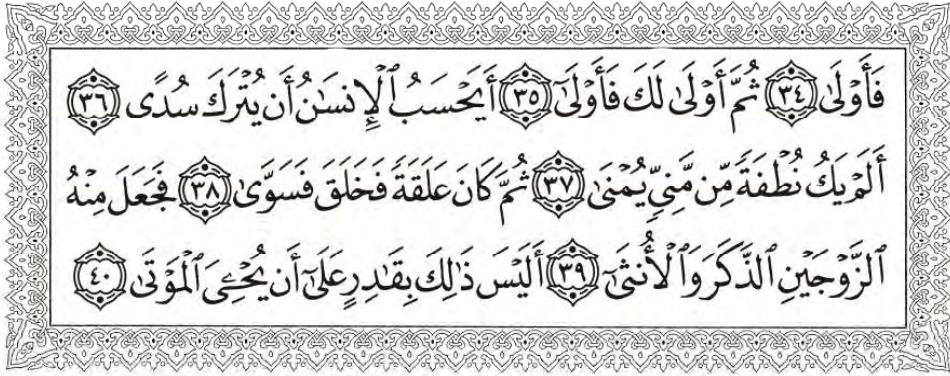 فَأَوْلَىٰ ٣٤ ثُمَّ أَوْلَىٰ لَكَ فَأَوْلَىٰٓ ٣٥ أَيَحْسَبُ ٱلْإِنسَٰنُ أَن يُتْرَكَ سُدًى ٣٦
أَلَمْ يَكُ نُطْفَةً مِّن مَّنِيٍّ يُمْنَىٰ ٣٧ ثُمَّ كَانَ عَلَقَةً فَخَلَقَ فَسَوَّىٰ ٣٨ فَجَعَلَ مِنْهُ
ٱلزَّوْجَيْنِ ٱلذَّكَرَ وَٱلْأُنثَىٰٓ ٣٩ أَلَيْسَ ذَٰلِكَ بِقَٰدِرٍ عَلَىٰٓ أَن يُحْـِۧىَ ٱلْمَوْتَىٰ ٤٠